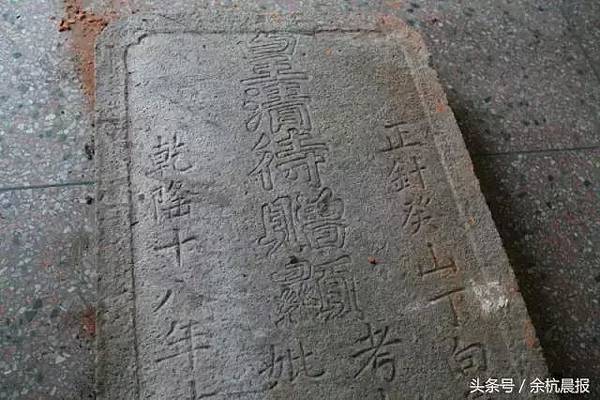 正針癸山丁向
皇清待贈顯
考
妣
乾隆十八年
头条号/余杭晨报